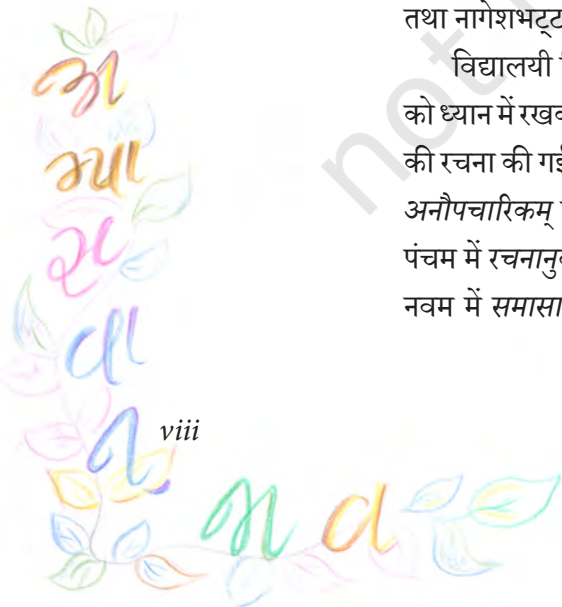 तथा नागेशभट्ट
विद्यालयी
को ध्यान में
की रचना की गई
अनौपचारिकम्
पंचम में रचनानु
नवम में समासा
अ
भ्या
स
वा
न्
भ व
viii
not